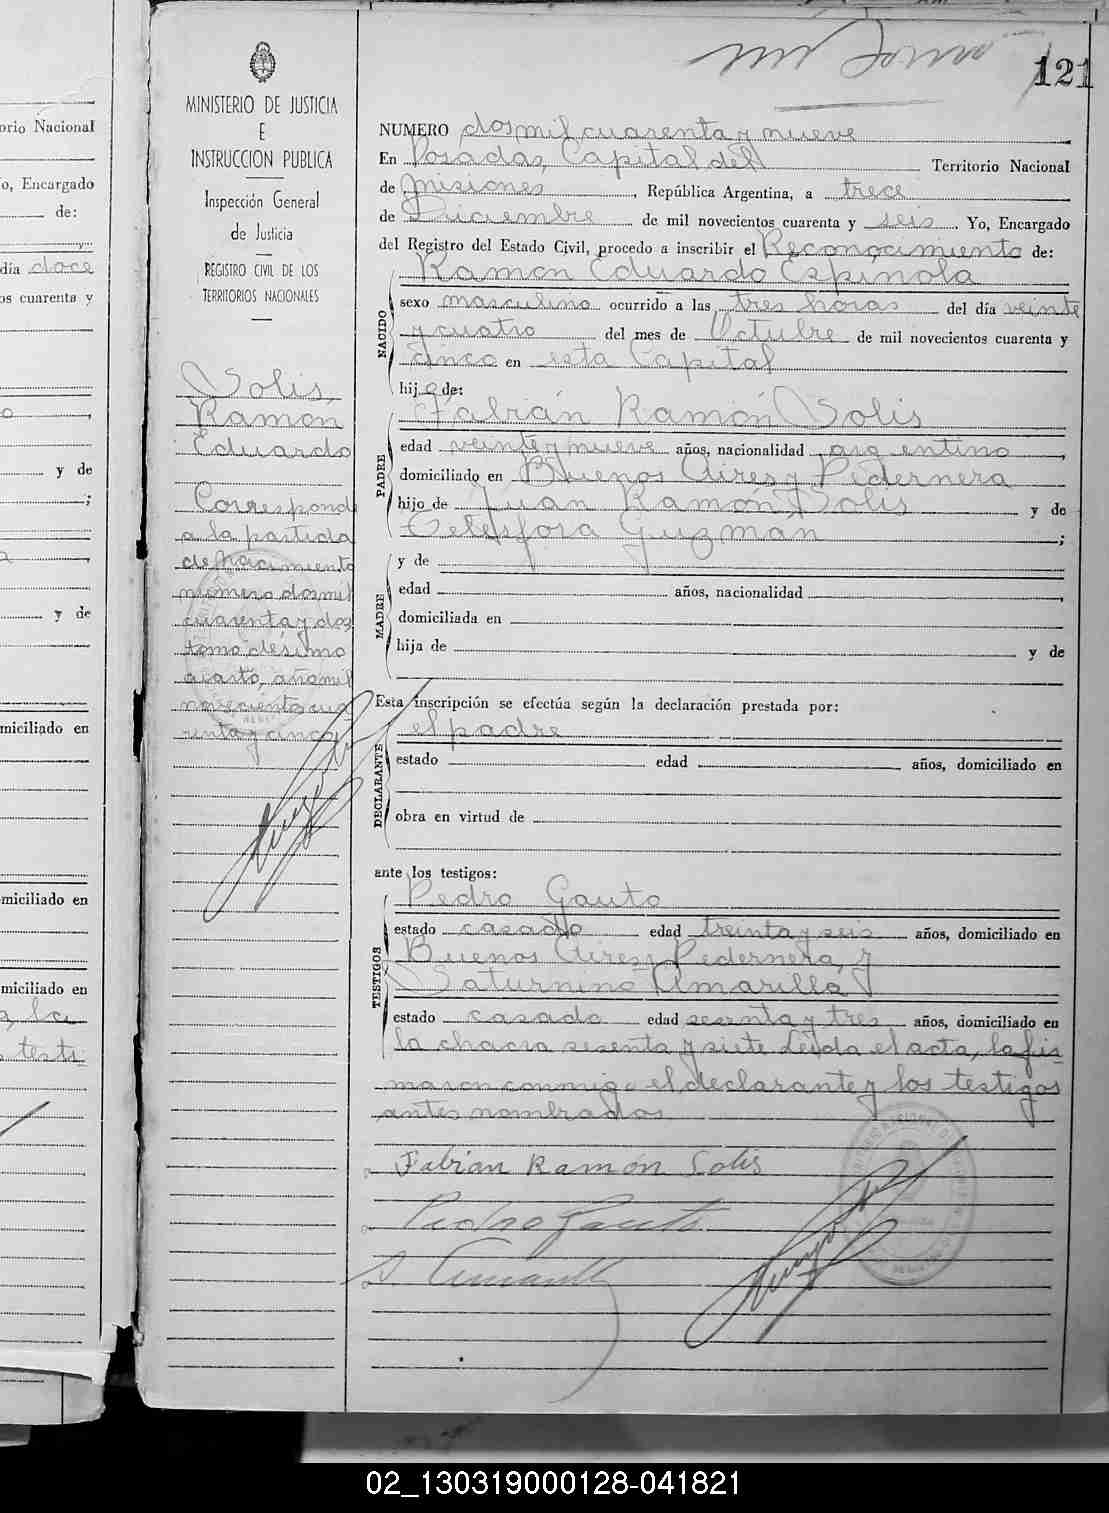 121
MINISTERIO DE JUSTICIA
E
INSTRUCCION PUBLICA
Inspección General
de Justicia
REGISTRO CIVIL DE LOS
TERRITORIOS NACIONALES
Solis,
Ramon
Eduardo
Corresponde
a la partida
de nacimiento
número dos mil
cuarenta y dos
tomo désimo
cuarto, año mil
novecientos cua
renta y cinco
NUMERO dos mil cuarenta y nueve
En Posadas, Capital del Territorio Nacional
de Misiones, República Argentina, a trece
de Diciembre de mil novecientos cuarenta y seis. Yo, Encargado
del Registro del Estado Civil, procedo a inscribir el Reconocimiento de:
Ramon Eduardo Espinola
NACIDO
sexo masculino ocurrido a las tres horas del día veinte
y cuatro del mes de Octubre de mil novecientos cuarenta y
cinco en esta Capital
hijo de:
Fabián Ramón Solis
PADRE
edad veinte y nueve años, nacionalidad argentino,
domiciliado en Buenos Aires y Pedernera
hijo de Juan Ramón Solis y de
Telesfora Guzmán;
y de
MADRE
edad años, nacionalidad,
domiciliada en
hija de y de
Esta inscripción se efectúa según la declaración prestada por:
el padre
DECLARANTE
estado edad años, domiciliado en
obra en virtud de
ante los testigos:
Pedro Gauto
TESTIGOS
estado casado edad treinta y seis años, domiciliado en
Buenos Aires y Pedernera, y
Saturnino Amarilla
estado casado edad sesenta y tres años, domiciliado en
la chacra sesenta y siete Leida el acta, la fir-
maron conmigo el declarante y los testigos
antes nombrados
Fabian Ramón Solis
Pedro Gauto
S. Amarilla
orio Nacional
o, Encargado
de:
día doce
os cuarenta y
y de
;
y de
miciliado en
miciliado en
miciliado en
02_130319000128-041821